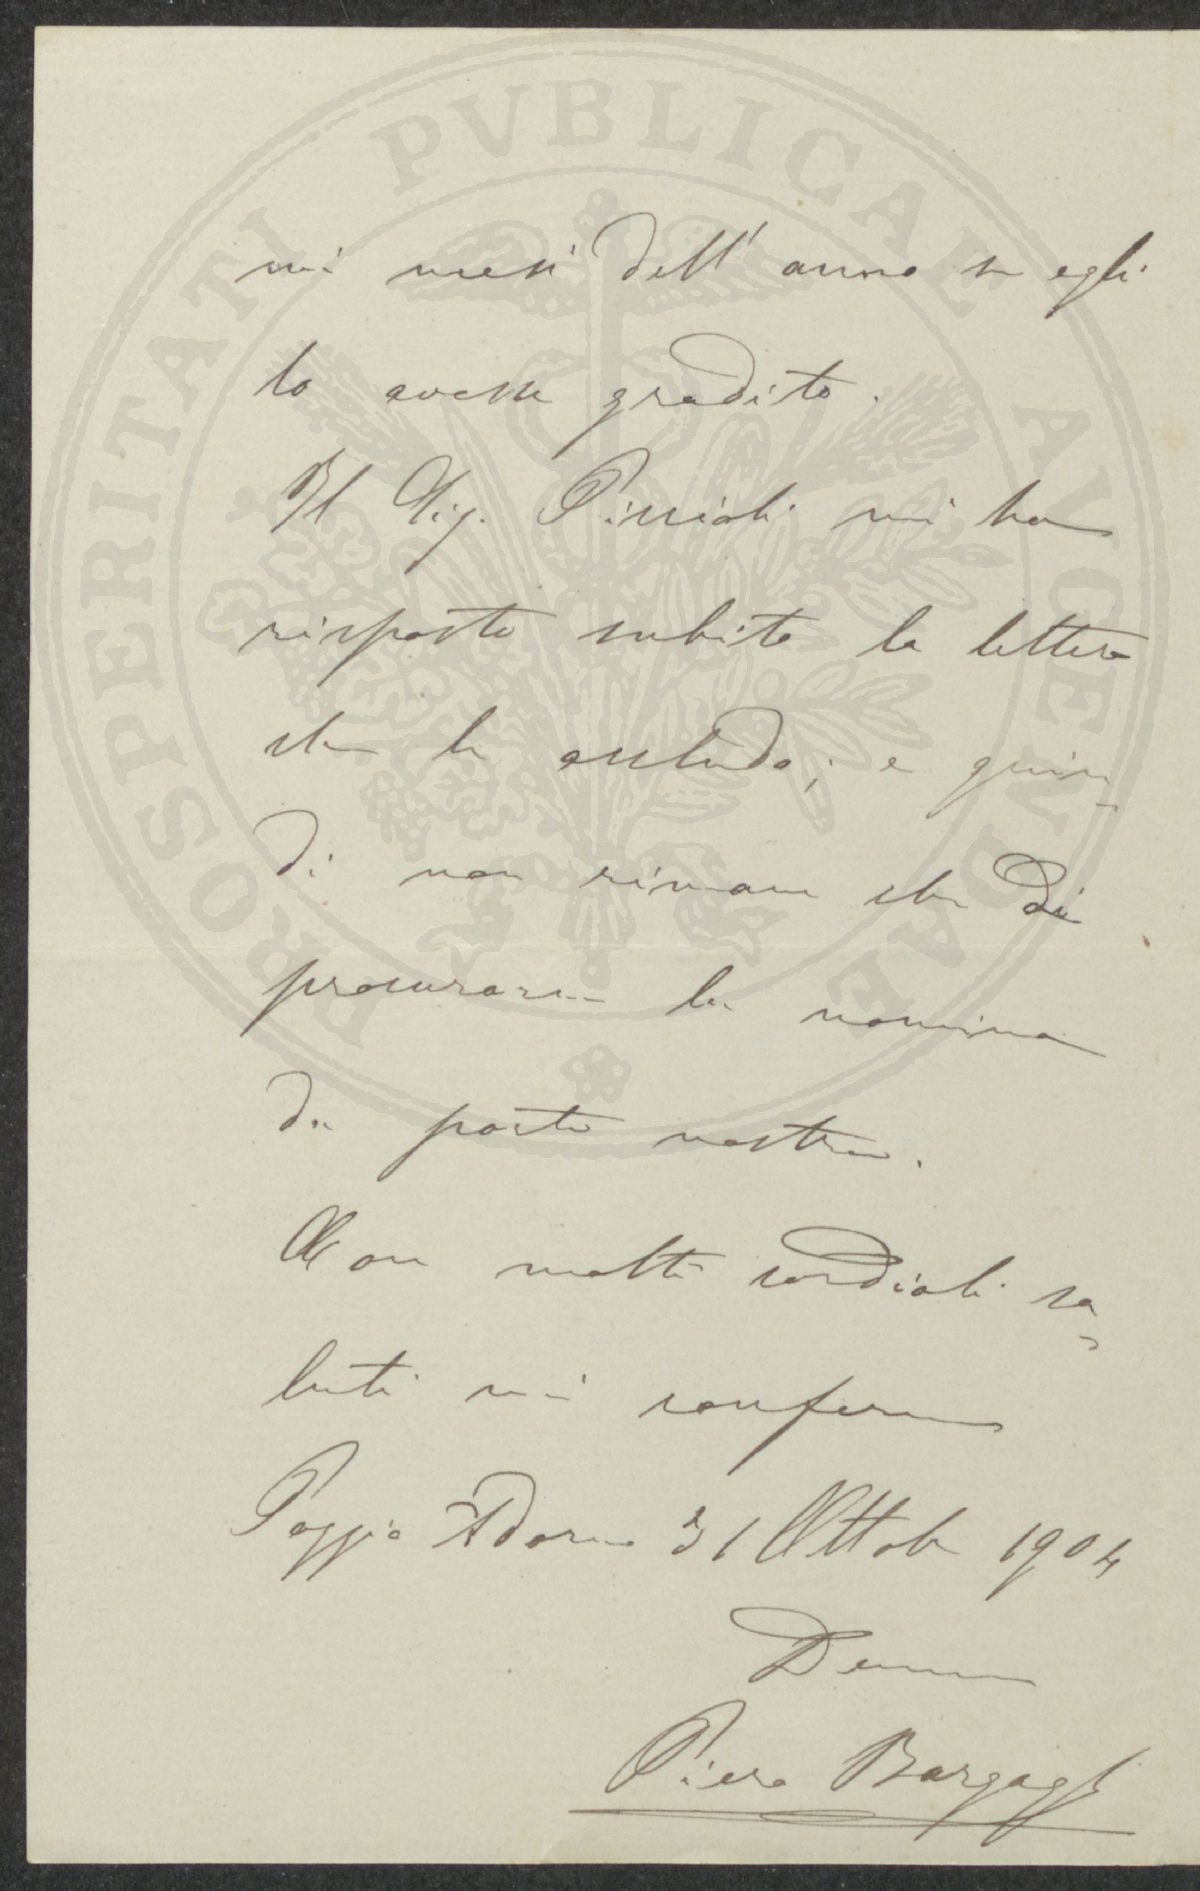 PROSPERITATI PVBLICAE AVGENDAE
mi mesi dell' anno se egli
lo avesse gradito.
Il Sig. mi ha
risposto subito la lettera
che le accludo; e quin-
di non rimane che di
procurarne la nomina
da parte nostra.
Con molti cordiali sa-
luti mi confermo
Poggio Adorno 31 Ottobe 1904
Demo
Piero Bargagli